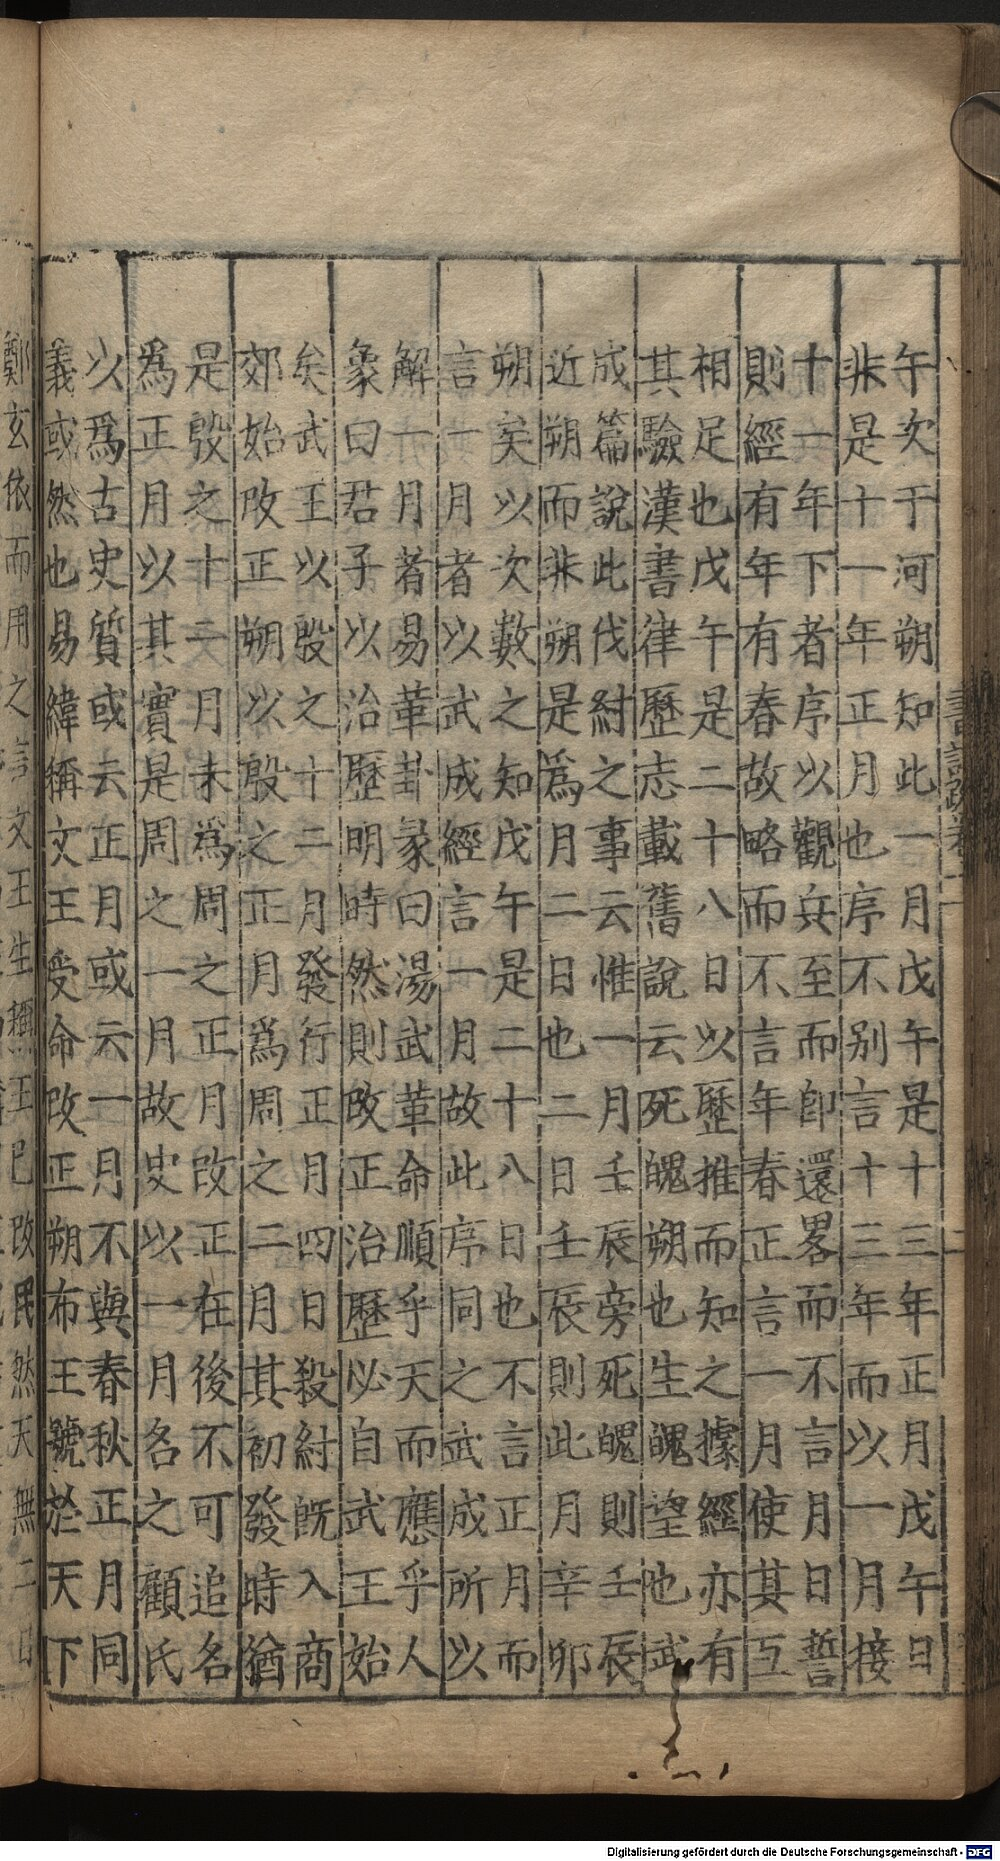 午次于河朔知此一月戊午是十三年正月戊午日
非是十一年正月也序不别言十三年而以一月接
十一年下者序以觀兵至而即還畧而不言月日誓
則經有年有春故略而不言年春正言一月使其互
相足也戊午是二十八日以歷推而知之據經亦有
其驗漢書律歷志載舊說云死魄朔也生魄望也武
成篇說此伐紂之事云惟一月壬辰旁死魄則壬辰
近朔而非朔是爲月二日也二日壬辰則此月辛卯
朔矣以次數之知戊午是二十八日也不言正月而
言一月者以武成經言一月故此序同之武成所以
解一月者易革卦彖曰湯武革命順乎天而應乎人
象曰君子以治歷明時然則改正治歷必自武王始
矣武王以殷之十二月發行正月四日殺紂既入商
郊始改正朔以殷之正月爲周之二月其初發時猶
是殷之十二月未爲周之正月改正在後不可追名
爲正月以其實是周之一月故史以一月名之顧氏
以爲古史質或云正月或云一月不與春秋正月同
義或然也易緯稱文王受命改正朔布王號於天下
鄭玄依而用之言文王生稱王已改民然天無二日
Digitalisierung gefördert durch die Deutsche Forschungsgemeinschaft - DFG